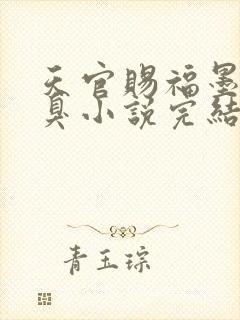 天官賜福墨
臭小說完結
青玉琮